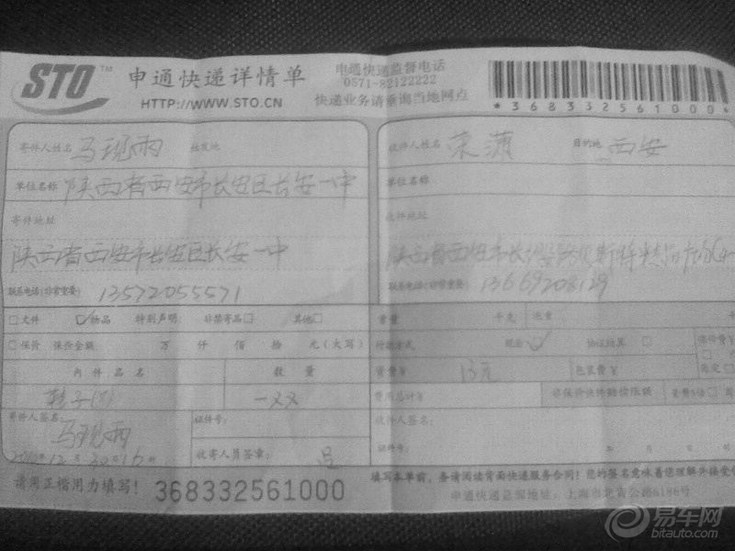 STO™ 申通快递详情单
HTTP://WWW.STO.CN
申通快递监督电话
0571-82122222
快递业务请垂询当地网点
*368332561000*
寄件人姓名 马现雨 始发地
收件人姓名 荣 目的地 西安
单位名称 陕西省西安市长安区长安一中
单位名称
寄件地址
收件地址
陕西省西安市长安区长安一中
陕西省西安市长
联系电话(非常重要) 13572055571
联系电话(非常重要) 13669208129
文件 物品 特别声明: 非禁寄品 其他
重量 千克
保价 保价金额 万 仟 佰 拾 元(大写)
付款方式 现金 协议结算
内件品名 数量
资费¥ 13元 包装费¥
鞋子 一双
费用总计¥
寄件人签名: 马现雨
证件号:
收件人签名:
12月30日16时
收寄人员签章:
证件号: 年 月 日 时
请用正楷用力填写! 368332561000
填写本单前,务请阅读背面快递服务合同!您的签名意味着您理解并接受
申通快递总部地址:上海市北青公路6186号
易车网
bitauto.com